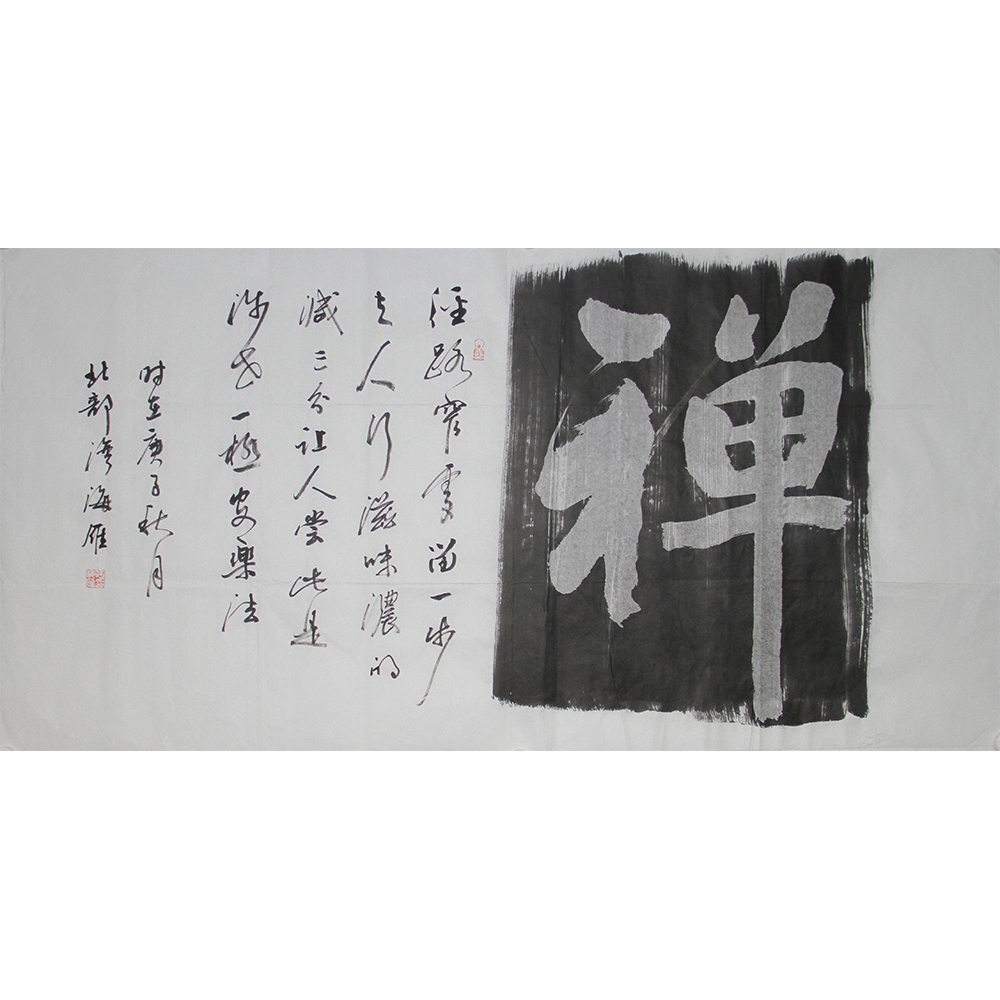 禅
徑路窄處留一步
与人行滋味濃的
減三分让人尝此是
涉世一極安樂法
时在庚子秋月
北部湾海雁